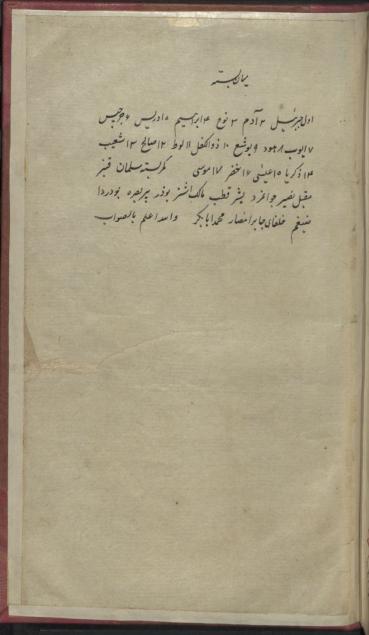 میان بسته
اول جبرئیل ۲ آدم ۳ نوح ۴ ابراهیم ۵ ادریس ۶ جرجیس
۷ ایوب ۸ هود ۹ یوشع ۱۰ ذوالکفل ۱۱ لوط ۱۲ صالح ۱۳ شعیب
۱۴ ذکریا ۱۵ عیسی ۱۶ خضر ۱۷ موسی کمربسته سلمان قنبر
مقبل نصیر جوانمرد قطب مالک اشتر بوذر بودردا
خلفای جابر انصار محمد ابابکر والله اعلم بالصواب